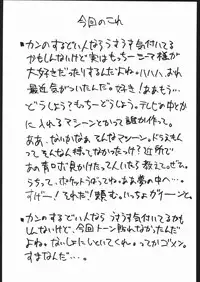 今回のこれ
・カンのするどい人ならうすうす気付いてる
かもしんないけど実はもっちーって様が
大好きだったりするんだよね。ハハハ、よくね
最近気がついたんだ。好き!ああもう…
どうしよう もっちーどうしよう。テレビの中とか
に入れるマシーンとかって誰か作って。
ああ、ないかなぁ、そんなマシーン。ドラえもん
ってそんなん持ってなかったっけ?近所で
あの青ロボ見かけたって人いたら教えて。ぜひ。
うちって、ポケットうばってね。ああ夢の中へ…。
すげー!それだ!頼む。いっちょガイーンと。
・カンのするどい人なら うすうす気付いてるかも
しんないけど、今回トーン貼れなかったんだ
よね。ないしょにしといてくれ。ってかゴメン。
すまなんだ…。